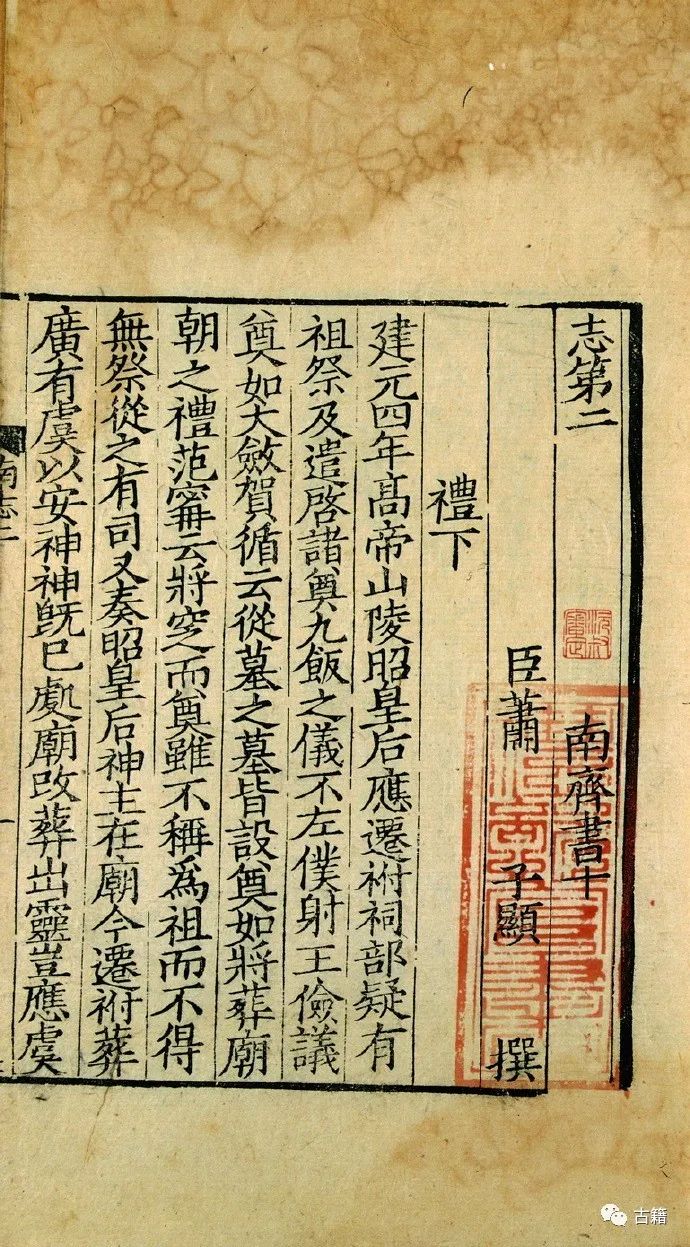 志第二 南齊書十
臣蕭 子顯 撰
禮下
建元四年髙帝山陵昭皇后應遷祔祠部疑有
祖祭及遣啓諸奠九飯之儀不左僕射王儉議
奠如大斂賀循云從墓之墓皆設奠如將葬廟
朝之禮范甯云將窆而奠雖不稱爲祖而不得
無祭從之有司又奏昭皇后神主在廟今遷祔葬
廣有虞以安神神旣已處廟改葬出靈豈應虞
南志二
古籍